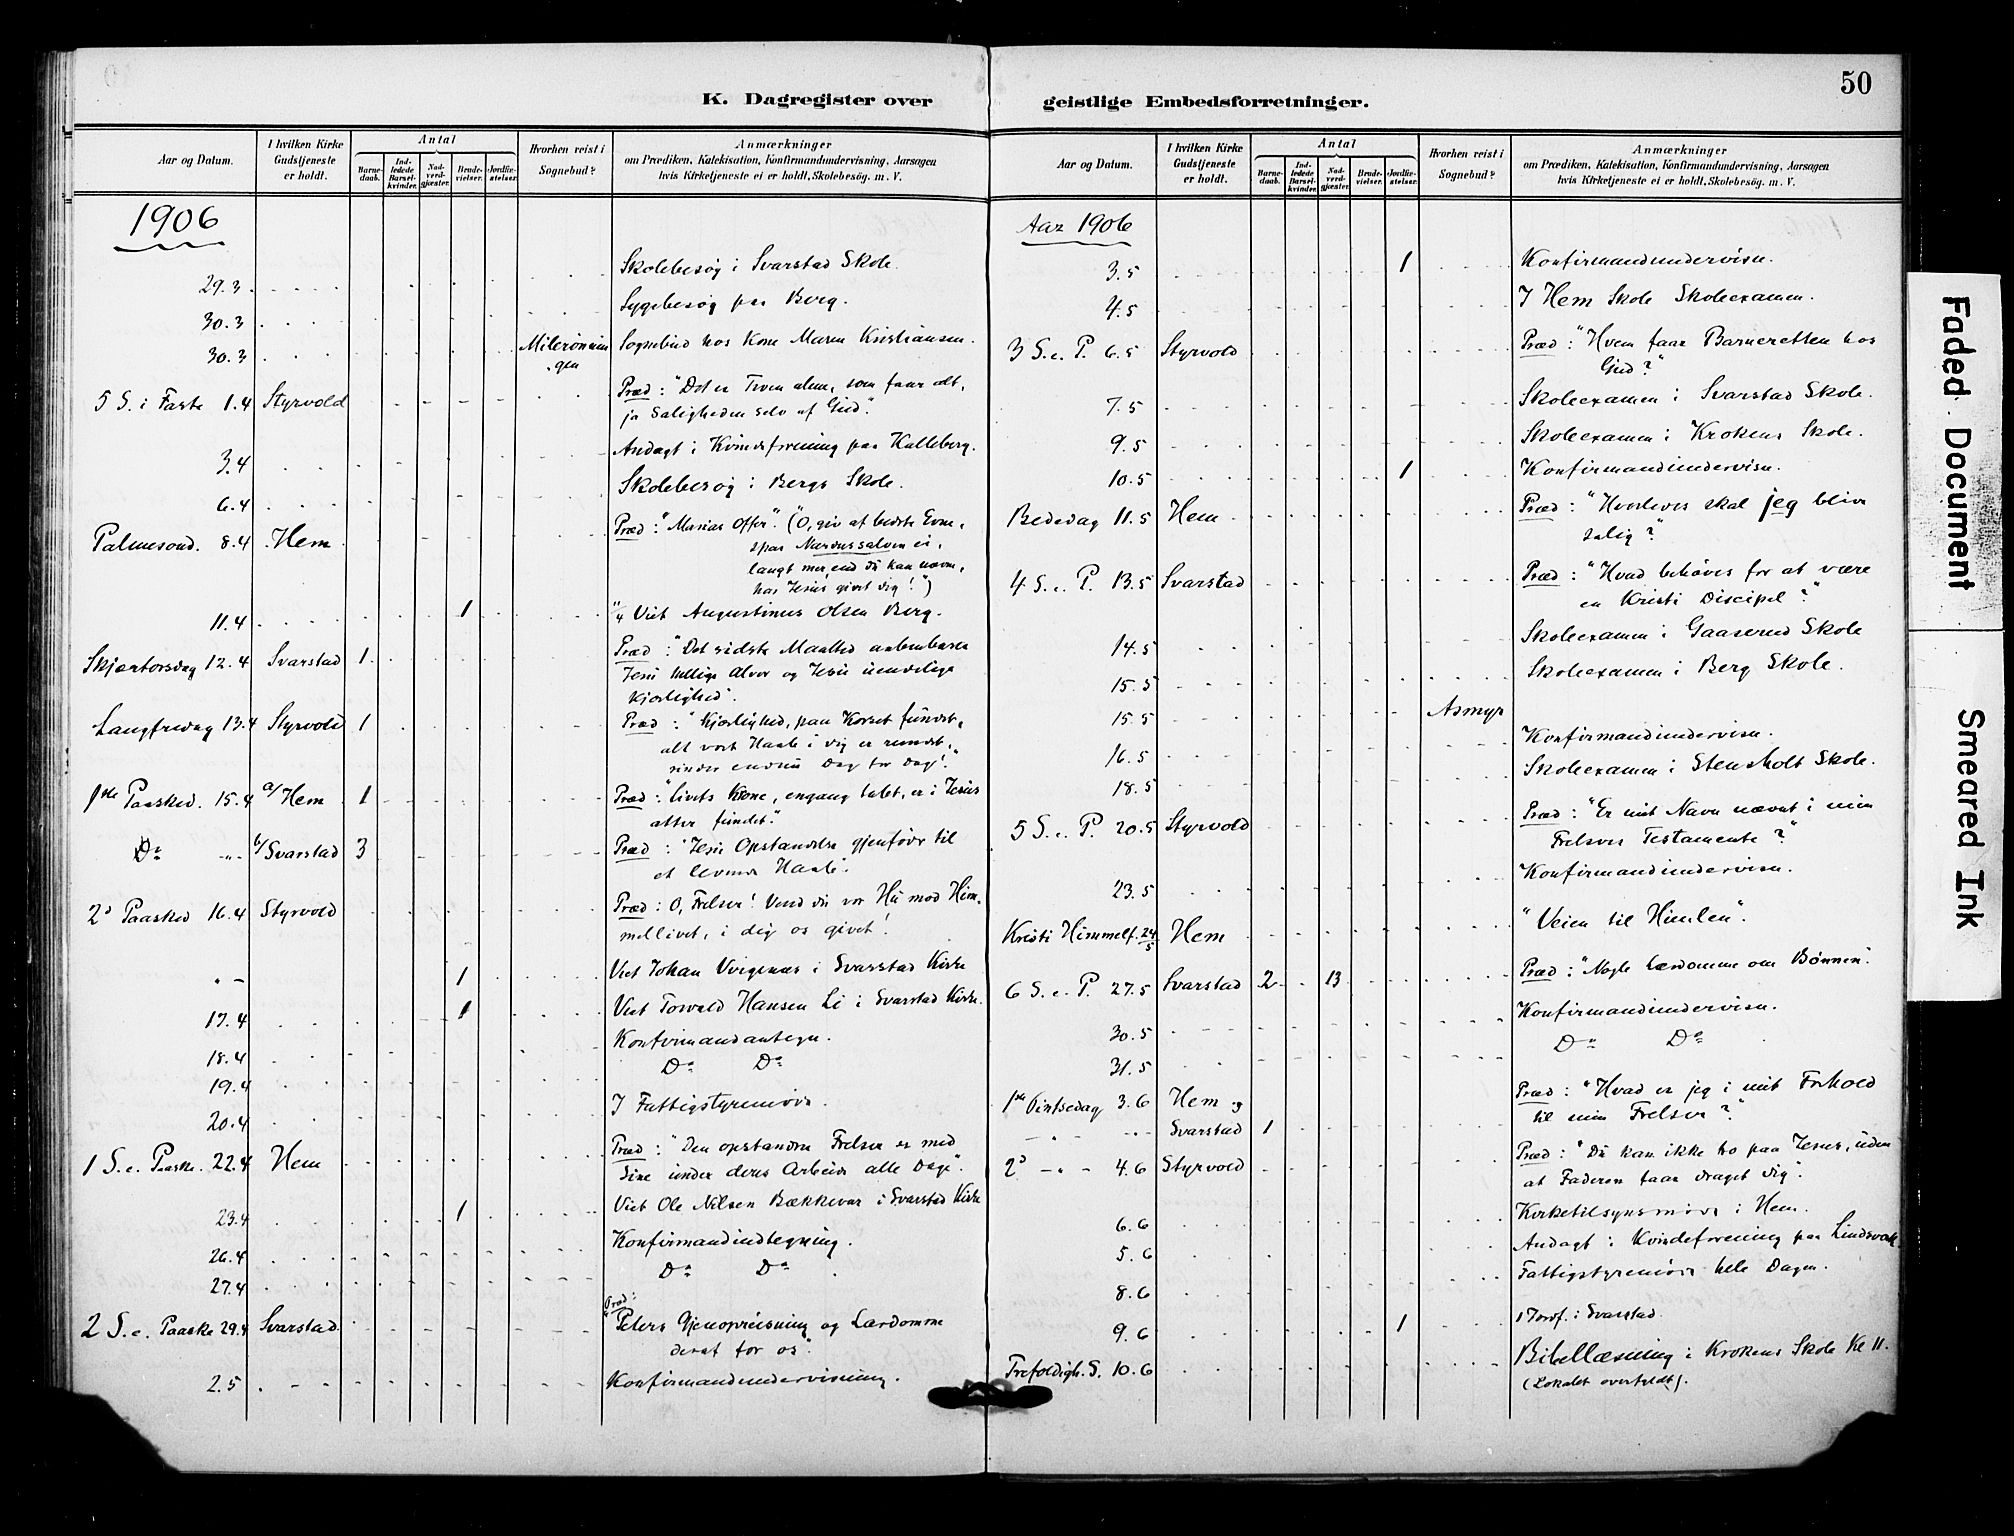 50
K. Dagregister over
geistlige Embedsforretninger.
Aar og Datum.
I hvilken Kirke Gudstjeneste er holdt.
Antal
Barne-daab.
Ind-ledede Barsel-kvinder.
Nad-verd-gjæster.
Brude-vielser.
Jordfæ-stelser.
Hvorhen reist i Sognebud?
Anmærkninger
om Prædiken, Katekisation, Konfirmandundervisning, Aarsagen
hvis Kirketjeneste ei er holdt, Skolebesøg. m. V.
1906
29.3 Skolebesøg i Svarstad Skole
30.3 Sygebesøg paa Berg.
30.3 Sognebud hos Kone Maren Kristiansen.
5 S. i Faste 1.4 Styrvold Præd: "Det er Troen alene, som faar alt,
ja Saligheden selv af Gud".
3.4 Andagt i Kvindeforening paa Kalleberg.
6.4 Skolebesøg i Bergs Skole.
Palmesønd. 8.4 Hem Præd: "Marias Offer". (O, giv at bedste Evne,
spar Nardussalven ei,
langt mer, end du kan nævne,
har Jesus givet dig!")
11.4 1 11/4 Viet Augustinus Olsen Berg.
Skjærtorsdag 12.4 Svarstad 1 Præd: "Det sidste Maaltid aabenbarer
Jesu hellige Alvor og Jesu uendelige
Kjærlighed".
Langfredag 13.4 Styrvold 1 Præd: "Kjærlighed, paa Korset fundet,
alt vort Haab i dig er rundet,
rinder endnu Dag for Dag".
1ste Paasked. 15.4 a/ Hem 1 Præd: "Livets Krone, engang tabt, er i Jesus
atter fundet."
Do -"- b/ Svarstad 3 Præd: "Jesu Opstandelse gjenføder til
et levende Haab".
2d Paasked 16.4 Styrvold Præd: O, Frelser! Vend du vor Hu mod Him-
mellivet, i dig os givet!
" - 1 Viet Johan Virgenæs i Svarstad Kirke
17.4 1 Viet Torvald Hansen Li i Svarstad Kirke.
18.4 Konfirmandantegn.
19.4 Do Do
20.4 I Fattigstyremøde.
1 S. e. Paaske. 22.4 Hem Præd: "Den opstandne Frelser er med
sine under deres Arbeide alle Dage".
23.4 1 Viet Ole Nilsen Bækkevar i Svarstad Kirke
26.4 Konfirmandindtegning.
27.4 Do Do
2 S. e. Paaske 29.4 Svarstad Præd:
"Peters Gjenopreisning og Lærdomme
deraf for os".
2.5 Konfirmandundervisning.
Aar og Datum.
I hvilken Kirke Gudstjeneste er holdt.
Antal
Barne-daab.
Ind-ledede Barsel-kvinder.
Nad-verd-gjæster.
Brude-vielser.
Jordfæ-stelser.
Hvorhen reist i Sognebud?
Anmærkninger
om Prædiken, Katekisation, Konfirmandundervisning, Aarsagen
hvis Kirketjeneste ei er holdt, Skolebesøg. m. V.
Aar 1906
3.5 1 Konfirmandundervisn.
4.5 I Hem Skole Skoleexamen.
3 S. e. P. 6.5 Styrvold Præd: "Hvem faar Barneretten hos
Gud?"
7.5 Skoleexamen i Svarstad Skole.
9.5 Skoleexamen i Krokens Skole.
10.5 1 Konfirmandundervisn.
Bededag 11.5 Hem Præd: "Hvorledes skal jeg blive
salig?"
4 S. e. P. 13.5 Svarstad Præd: "Hvad behøves for at være
en Kristi Discipel?"
14.5 Skoleexamen i Gaaserud Skole
15.5 Skoleexamen i Berg Skole.
15.5 Asmyr
16.5 Konfirmandundervisn.
18.5 Skoleexamen i Stensholt Skole.
5 S. e. P. 20.5 Styrvold Præd: "Er mit Navn nævnt i min
Frelsers Testamente?"
23.5 Konfirmandundervisn.
Kristi Himmelf. 24/5 Hem "Veien til Himlen".
6 S. e. P. 27.5 Svarstad 2 13 Præd: "Nogle Lærdomme om Bønnen".
30.5 Konfirmandundervisn.
31.5 Do Do
1ste Pintsedag 3.6 Hem og Præd: "Hvad er jeg i mit Forhold
til min Frelser?"
- " - Svarstad 1
2d - " - 4.6 Styrvold Præd: "Du kan ikke tro paa Jesus, uden
at Faderen faar draget dig".
6.6 Kirketilsynsmøde i Hem.
5.6 Andagt i Kvindeforening paa
8.6 Fattigstyremøde hele Dagen.
9.6 1 1 Jordf. i Svarstad.
Trefoldigh. S. 10.6 Bibellæsning i Krokens Skole Kl 11.
(Lokalet overfyldt).
Faded Document
Smeared Ink